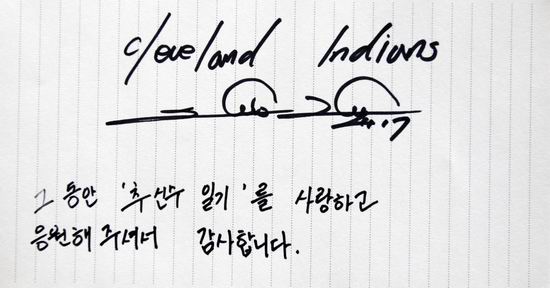 Cleveland Indians
#17
그 동안 '추신수 일기'를 사랑하고
응원해 주셔서 감사합니다.